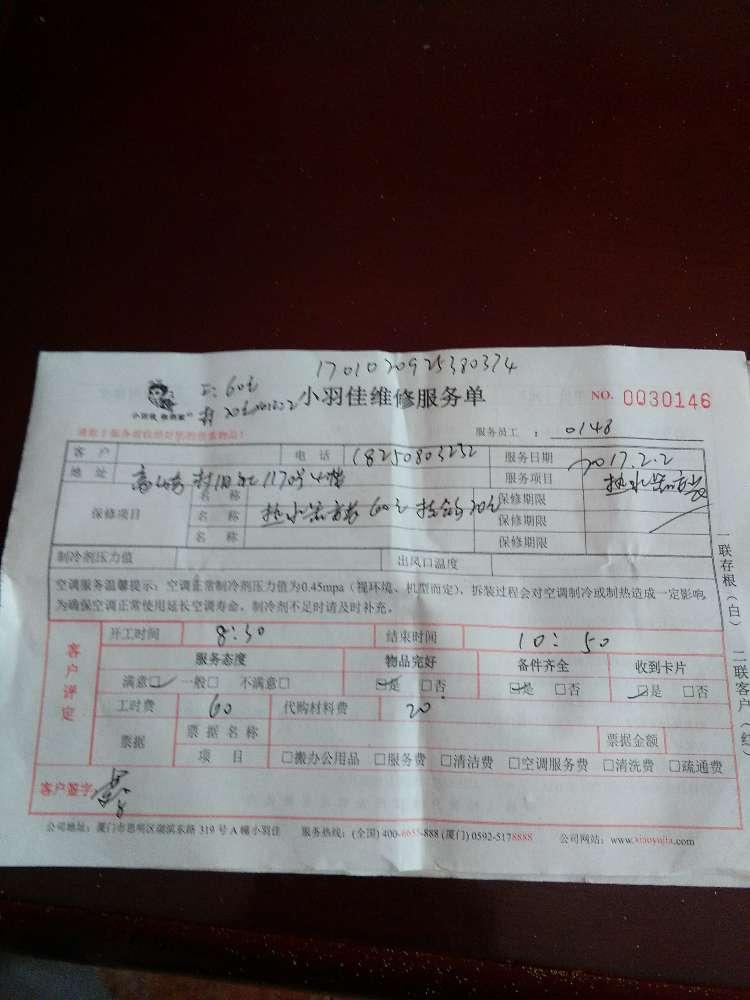 1701020925380374
工:60元
小羽佳维修服务单
NO. 0030146
服务员工 : 0148
客户 电话 18250803232 服务日期 2017.2.2
地址 村旧社1170号 服务项目 热水器安装
名称 保修期限
保修项目 名称 热水器安装60元 20元 保修期限
名称 保修期限
制冷剂压力值 出风口温度
空调服务温馨提示:空调正常制冷剂压力值为0.45mpa(视环境、机型而定),拆装过程会对空调制冷或制热造成一定影响
为确保空调正常使用延长空调寿命,制冷剂不足时请及时补充。
一联存根(白) 二联客户(红)
客户评定
开工时间 8:30 结束时间 10:50
服务态度 物品完好 备件齐全 收到卡片
满意□ 一般□ 不满意□ □是 □否 □是 □否 □是 □否
工时费 60 代购材料费 20
票据 票据名称 票据金额
项目 □搬办公用品 □服务费 □清洁费 □空调服务费 □清洗费 □疏通费
客户签字
公司地址:厦门市思明区湖滨东路 319 号 A 幢小羽佳 服务热线:(全国) 400-8655-888 (厦门) 0592-5178888 公司网站:www.xiaoyujia.com